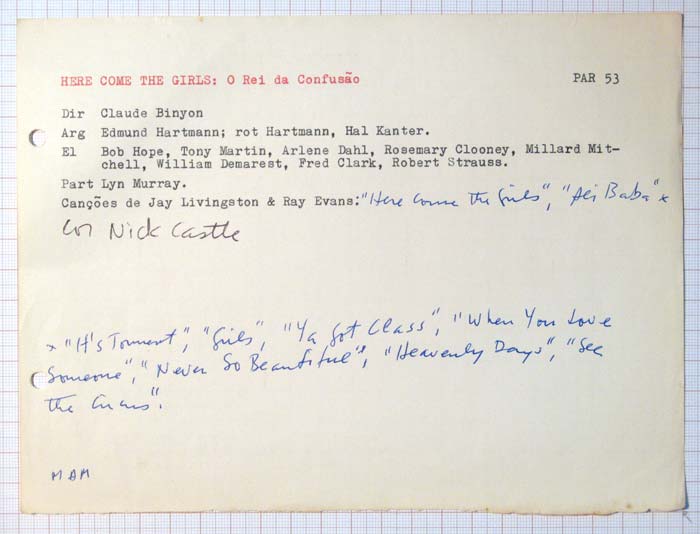 HERE COME THE GIRLS: O Rei da Confusão PAR 53
Dir Claude Binyon
Arg Edmund Hartmann; rot Hartmann, Hal Kanter.
El Bob Hope, Tony Martin, Arlene Dahl, Rosemary Clooney, Millard Mit-
chell, William Demarest, Fred Clark, Robert Strauss.
Part Lyn Murray.
Canções de Jay Livingston & Ray Evans: "Here Come The Girls", "Ali Baba" x
Cor Nick Castle
x "It's Torment", "Girls", "Ya Got Class", "When You Love
Someone", "Never So Beautiful", "Heavenly Days", "See
the
MAM